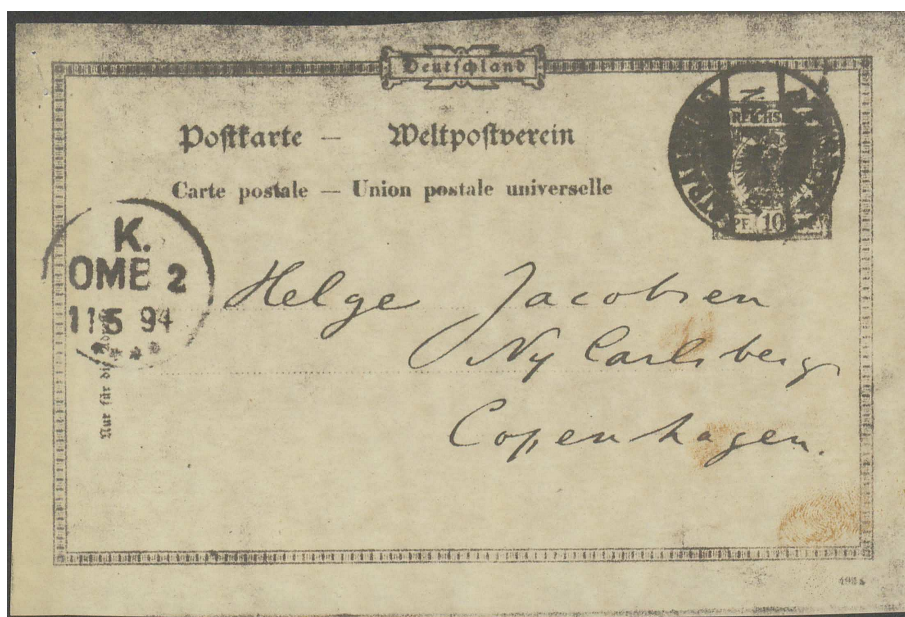 Deutschland
Postkarte — Weltpostverein
Carte postale — Union postale universelle
REICHSP
PF. 10
K.
OMB 2
11 5 94
Nur für die
Helge Jacobsen
Ny Carlsberg
Copenhagen.